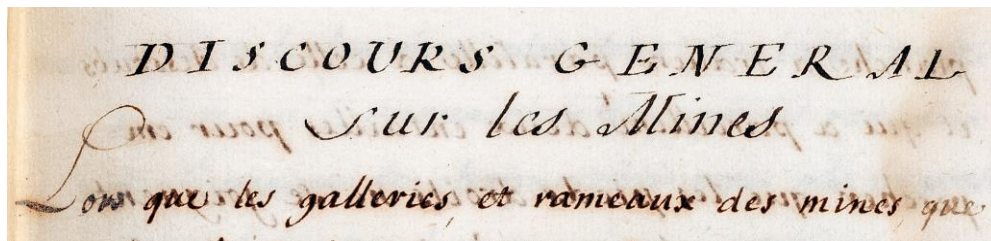 DISCOURS GENERAL
sur les Mines
Lors que les galleries et rameaux des mines que